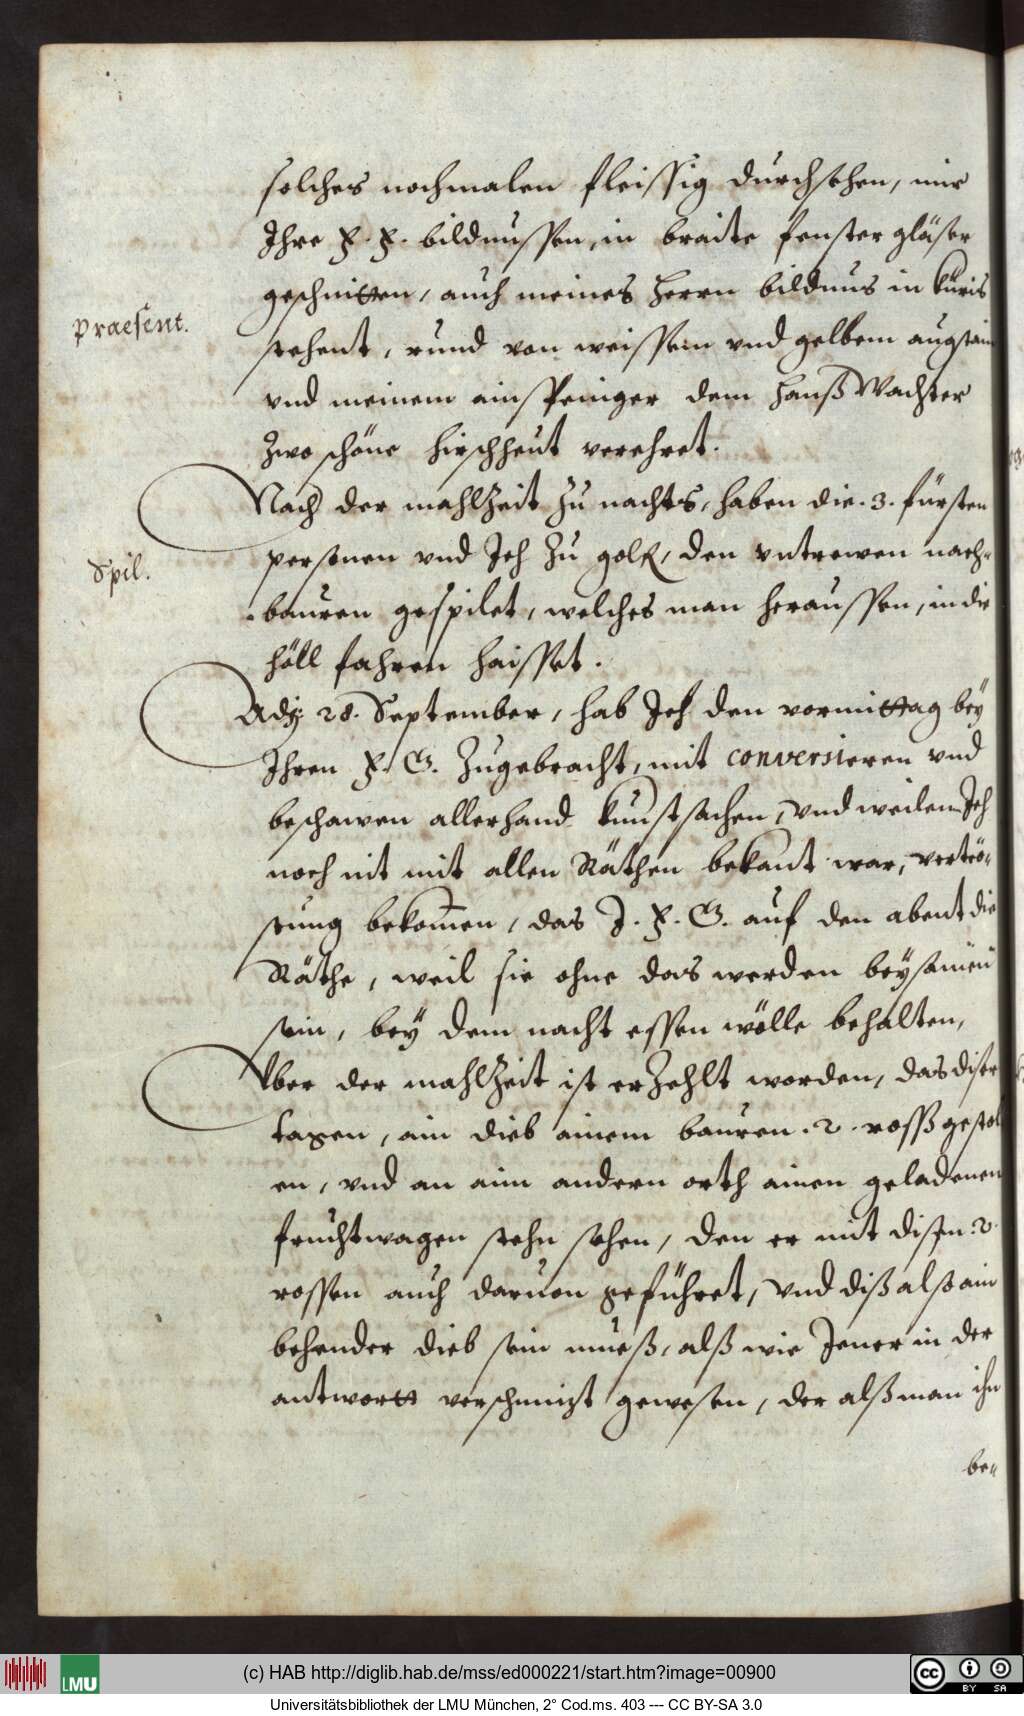 solches nochmalen fleissig durchsehen, mir
Ihre F. F. bildnussen, in braite fenster gläser
geschnitten, auch meines Herrn bildnus in küris
praesent.
stehent, rund von weissem vnd gelbem augstain
vnd meinem ainspeniger dem Hanß Wachter
zwo schöne hirschheut verehret.
Nach der mahlzeit zu nachts, haben die .3. fürsten
Spil.
personen vnd Ich zu golf, den vntrewen nach-
bauren gespilet, welches man heraussen, in die
höll fahren haisset.
Adj. 28. September, hab Ich den vormittag bey
Ihren F. G. zugebracht, mit conversieren vnd
beschawen allerhand kunstsachen, vnd weilen Ich
noch nit mit allen Räthen bekant war, vertrö-
stung bekomen, das I. F. G. auf den abent die
Räthe, weil sie ohne das werden beysamen
sein, bey dem nacht essen wölle behalten,
Vber der mahlzeit ist erzehlt worden, das diser
tagen, ain dieb ainem bauren .2. rosß gestol
en, vnd an aim andern orth ainen geladenen
fruchtwagen stehn sehen, den er mit disen .2.
rossen auch daruon geführet, vnd diß also ain
behender dieb sein mueß, alß wie Jener in der
antwortt verschmizt gewesen, der alß man ihn
be-
(c) HAB http://diglib.hab.de/mss/ed000221/start.htm?image=00900
LMU
cc BY SA
Universitätsbibliothek der LMU München, 2° Cod.ms. 403 --- CC BY-SA 3.0